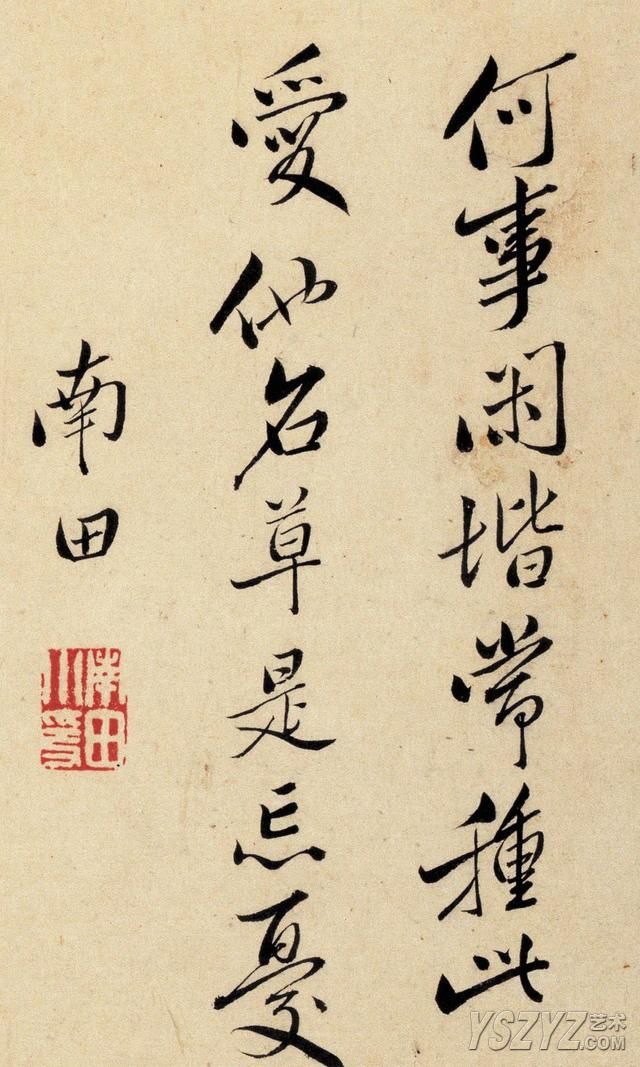 何事閑堦常種此
愛他名草是忘憂
南田
YSZYZ艺术.COM